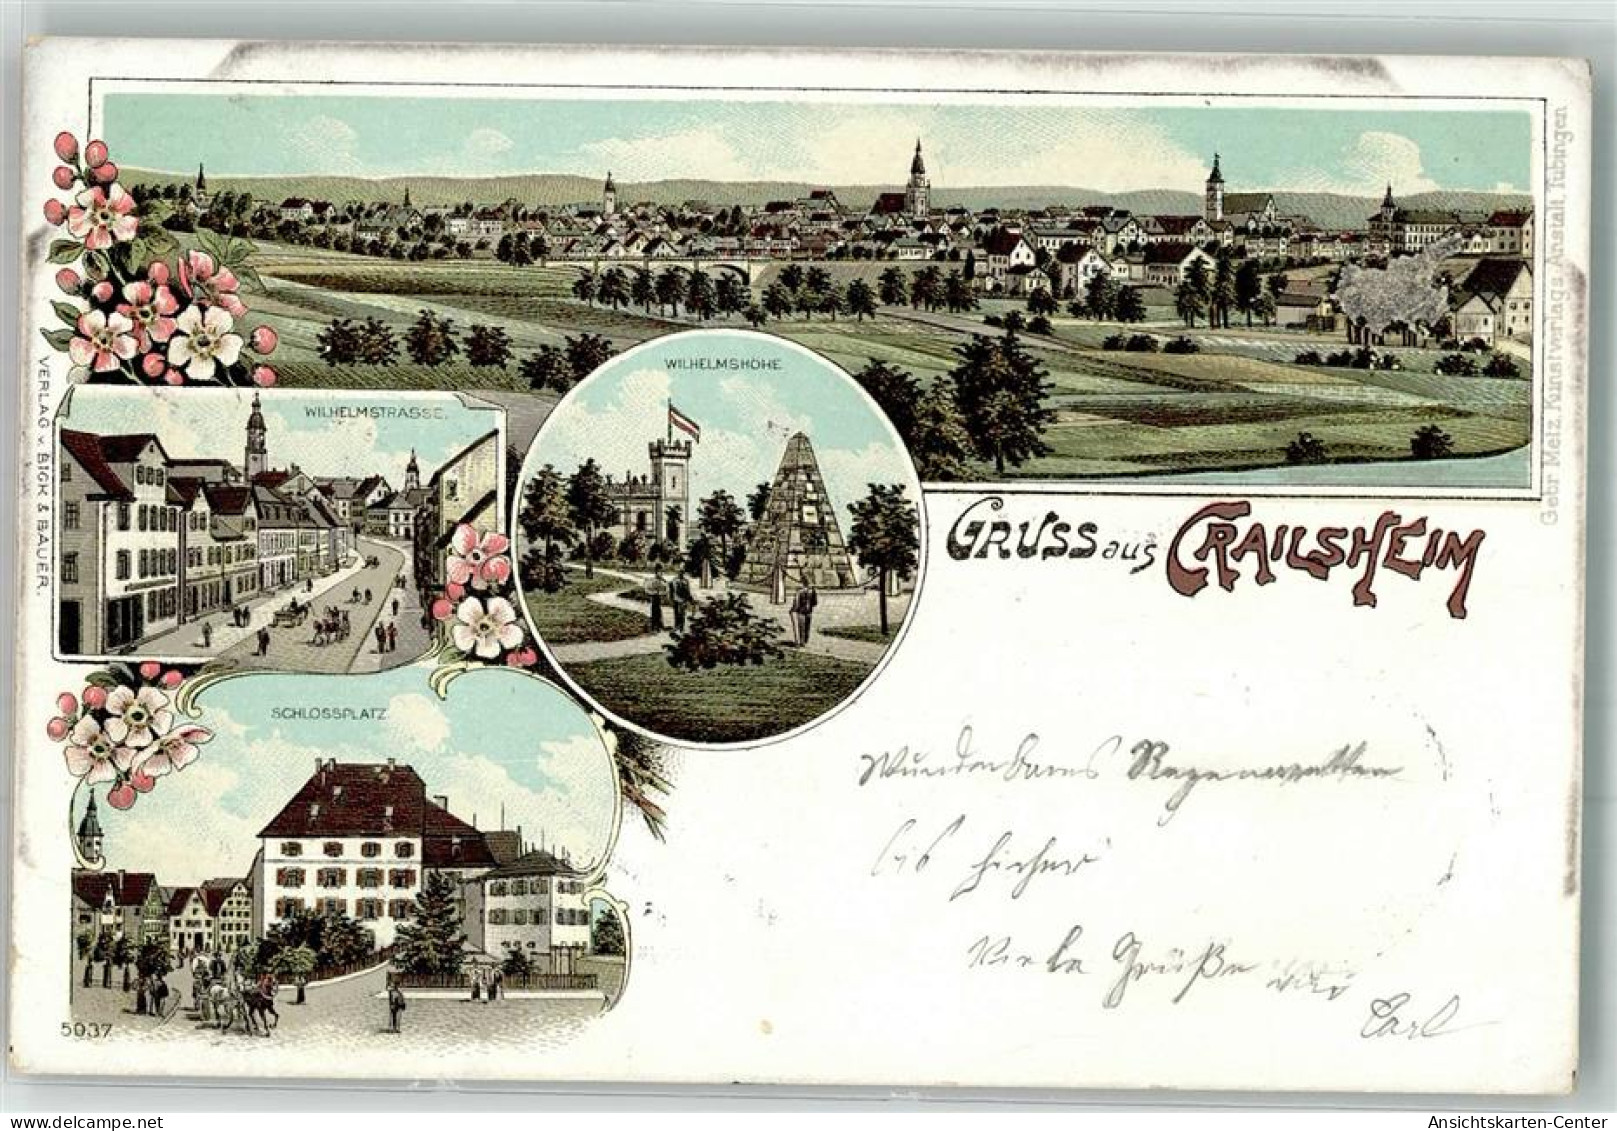 WILHELMSHÖHE
WILHELMSTRASSE.
GRUSS aus CRAILSHEIM
SCHLOSSPLATZ
Wunderbares Regenwetter
bis hieher
Viele Grüße
Carl
5037
VERLAG v. BICK & BAUER.
Gebr Metz, Kunstverlags-Anstalt, Tübingen
Ansichtskarten-Center